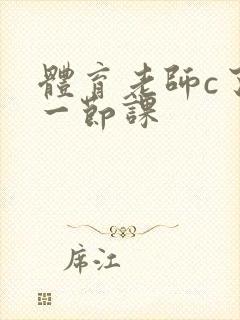 體育老師c了
一節課
席江